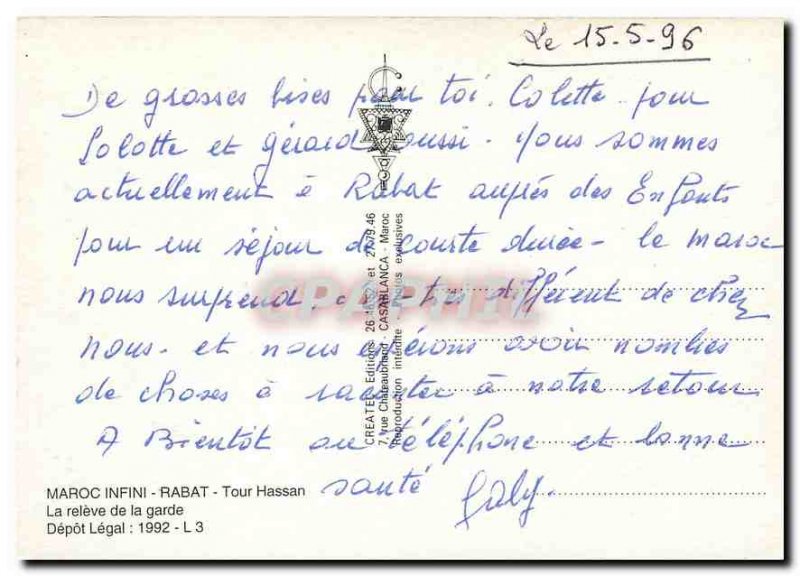 Le 15-5-96
De grosses bises pour toi. Colette pour
Lolotte et Gérard aussi. Nous sommes
actuellement à Rabat auprès des Enfants
pour un séjour de courte durée - le maroc
nous surprend. c'est très différent de chez
nous. et nous espérons avoir nombres
de choses à raconter à notre retour
A Bientôt au téléphone et bonne
santé Gaby.
MAROC INFINI - RABAT - Tour Hassan
La relève de la garde
Dépôt Légal : 1992 - L 3
CREATEL Editions et 27.79.46
7, rue Chateaubriand - CASABLANCA - Maroc
Reproduction interdite - Photos exclusives
CPAPHIL